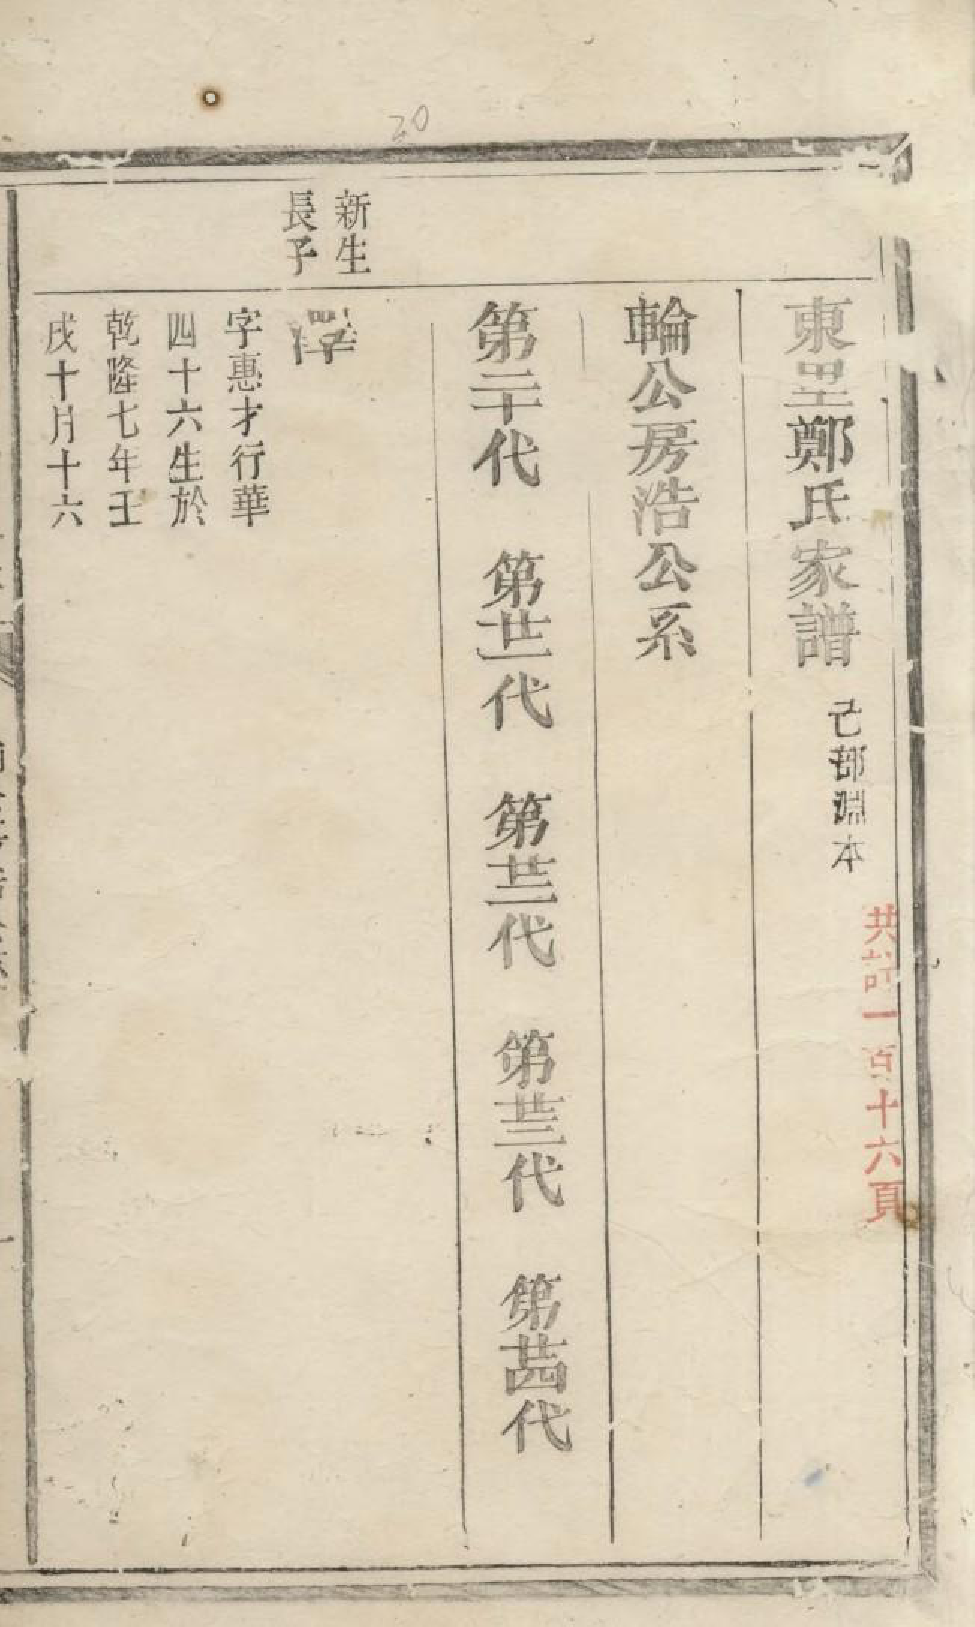 東里鄭氏家譜
己部淵本
共計一百十六頁
輪公房浩公系
第二十代 第廿一代 第廿二代 第廿三代 第廿四代
新生
長子
澤
字惠才行華
四十六生於
乾隆七年壬
戌十月十六
20